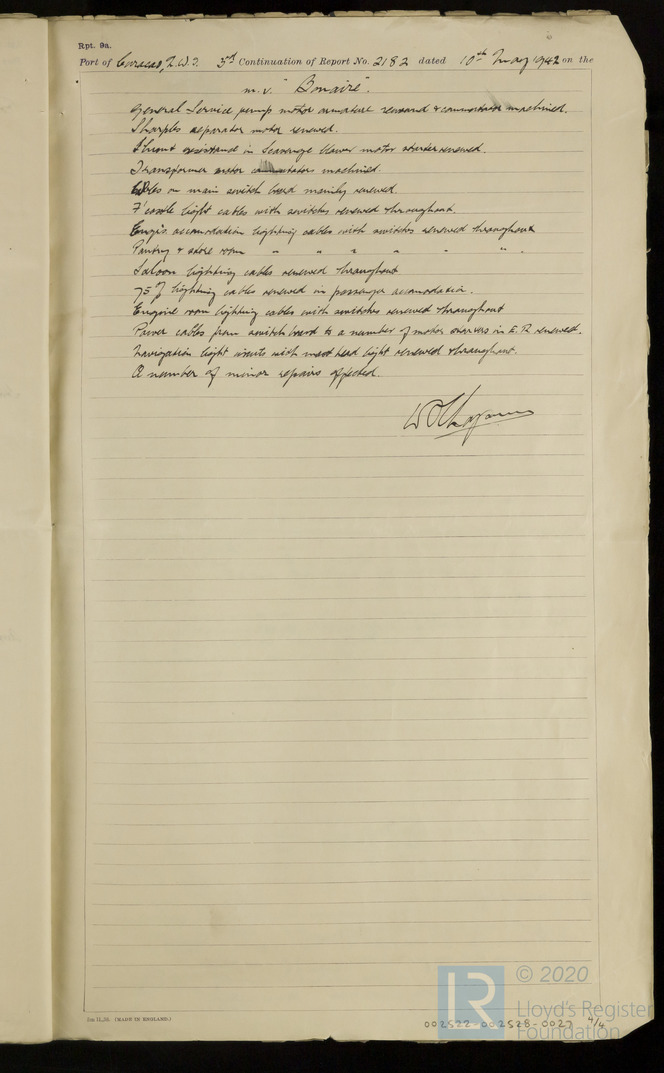 Rpt. 9a.
Port of Curacao, N.W.I. 5th Continuation of Report No. 2182 dated 10th May 1942 on the
m.v. "Bonaire".
General Service pump motor armature rewound & commutator machined.
Sharples separator motor renewed.
Shunt resistance in Scavenge blower motor starter renewed.
Transformer motor commutators machined.
Cables on main switch board mainly renewed.
F'castle light cables with switches renewed throughout.
Engrs. accomodation lighting cables with switches renewed throughout
Pantry & store room " " " " " " .
Saloon lighting cables renewed throughout
75% lighting cables renewed in passenger accomodation.
Engine room lighting cables with switches renewed throughout
Power cables from switch board to a number of motor starters in E.R. renewed.
Navigation light circuits with mast head light renewed throughout.
A number of minor repairs effected.
5m 11,36. (MADE IN ENGLAND.)
LR © 2020
Lloyd's Register
Foundation
002522-002528-0027 4/4